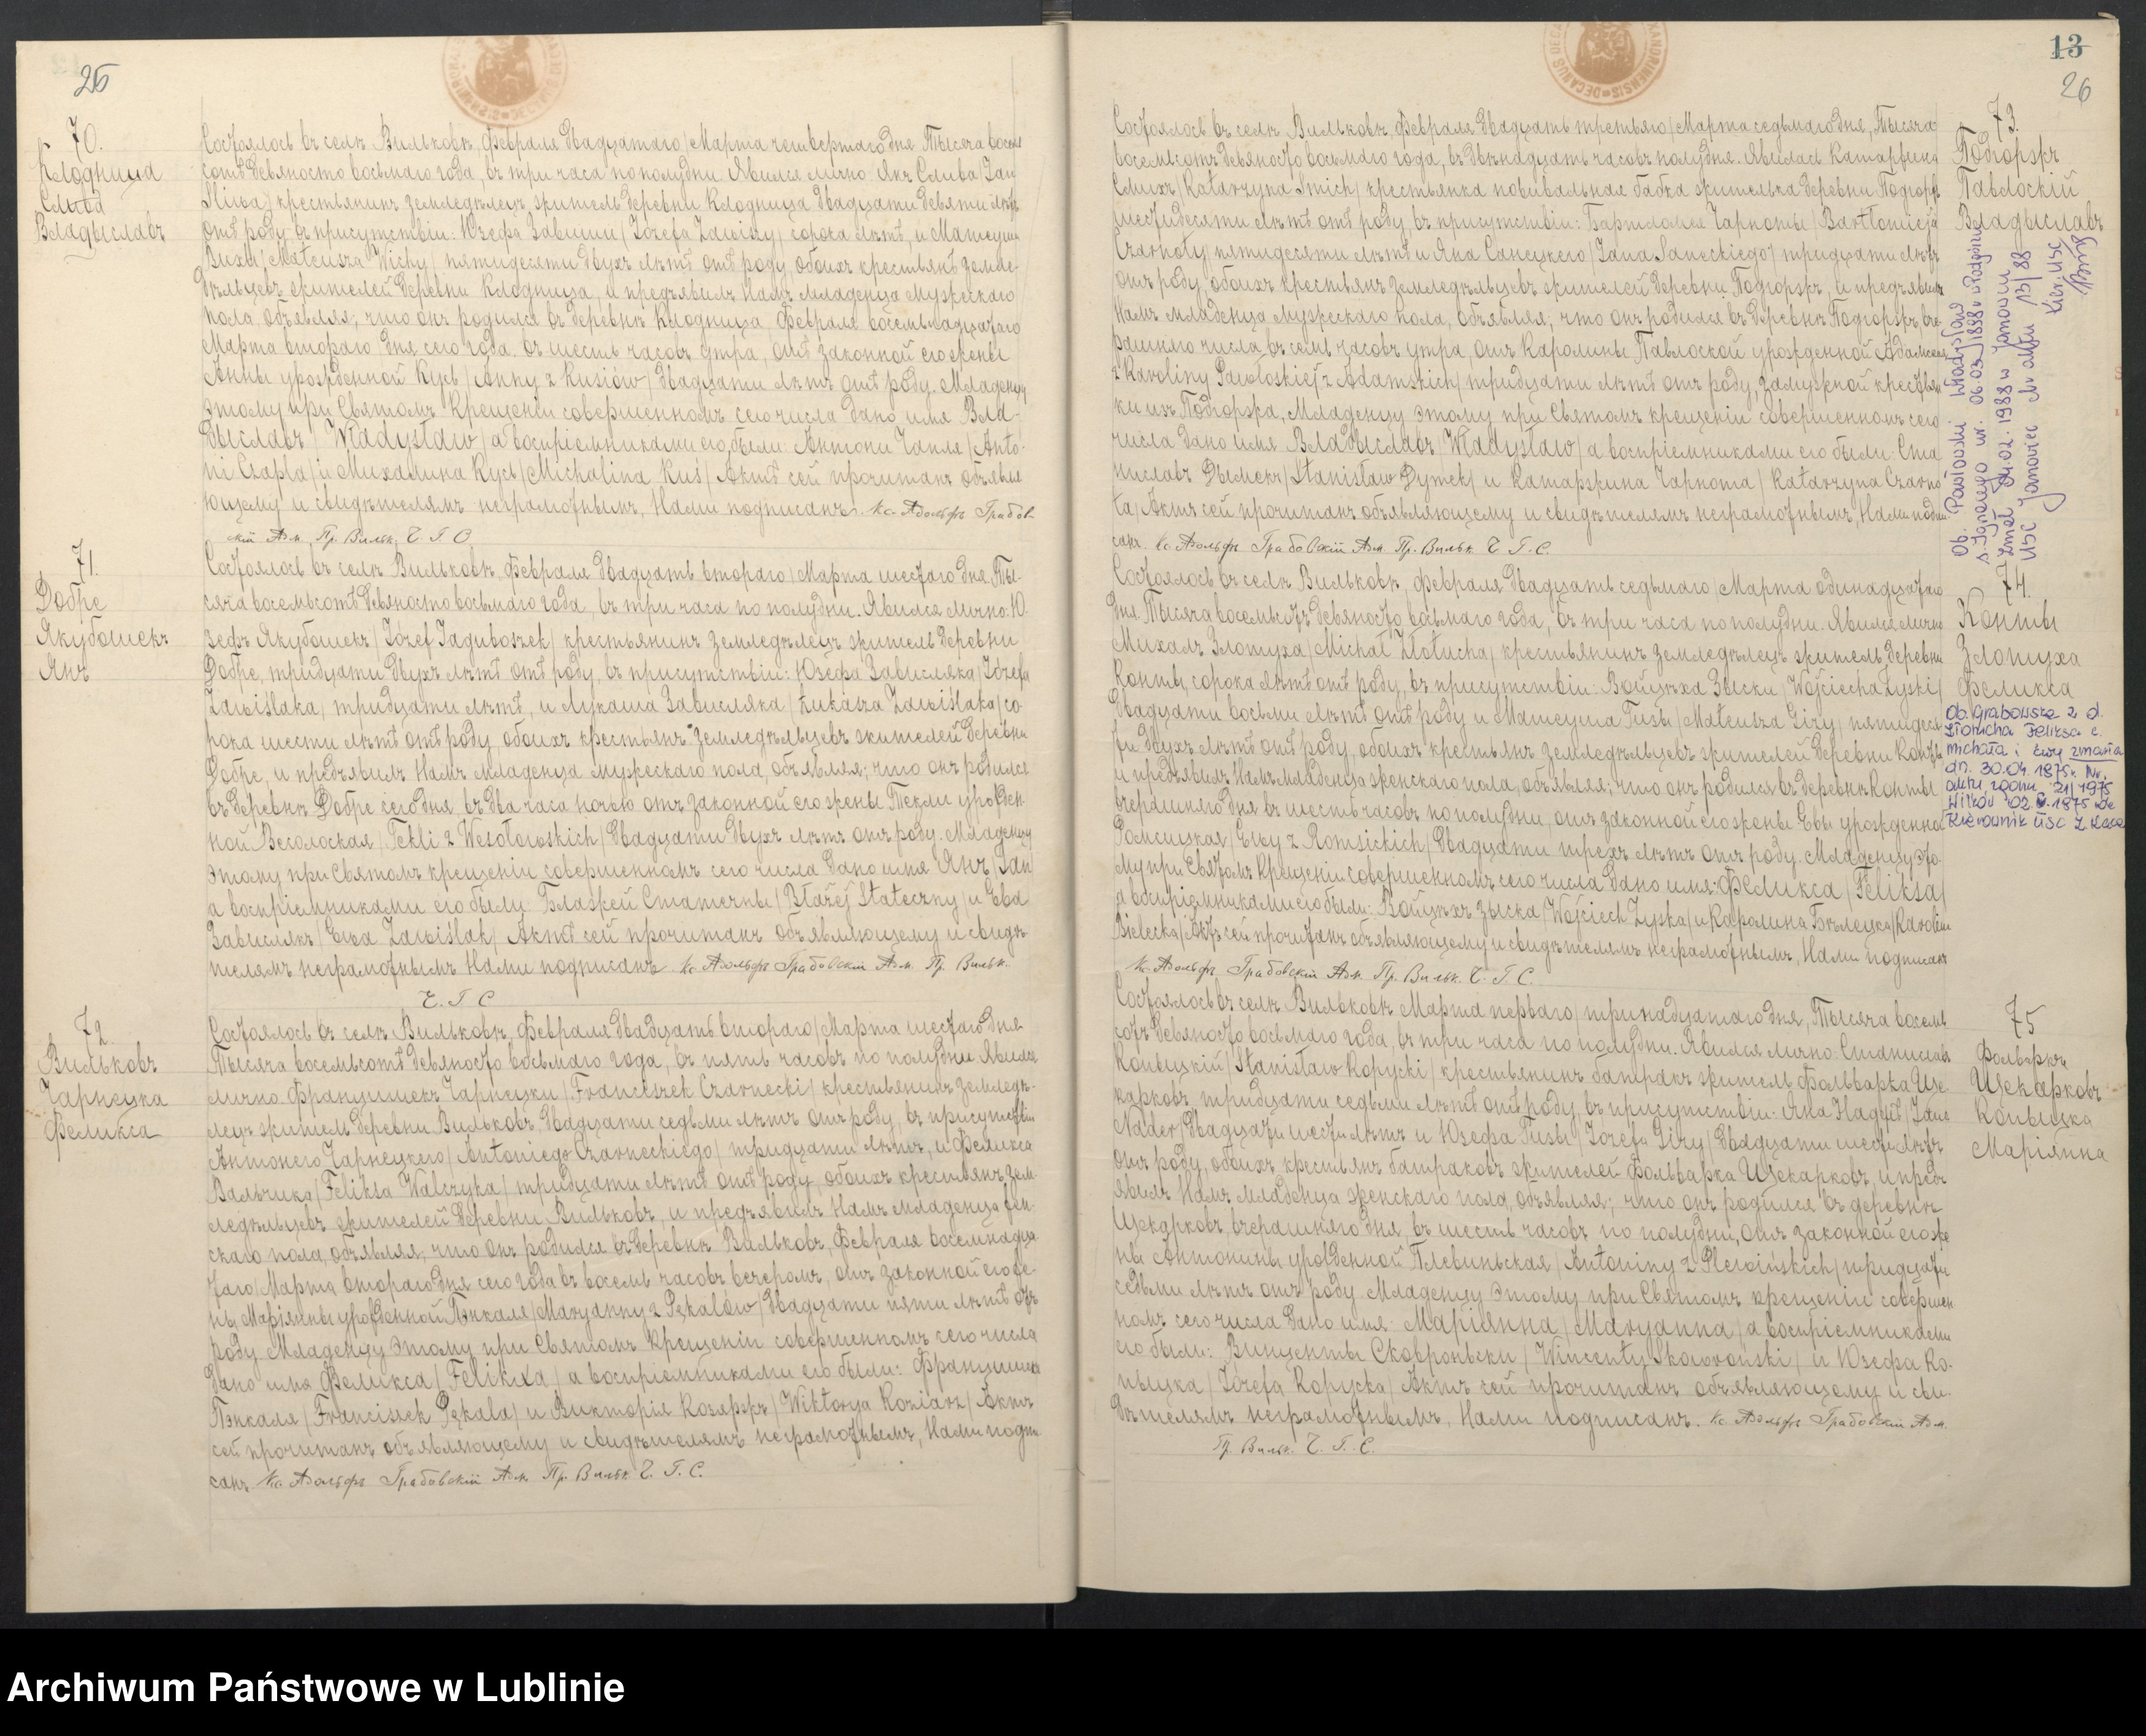 25
70.
Клодница
Слива
Владыславъ
Состоялось въ селѣ Вильковѣ, Февраля двадцатаго / Марта четвертаго дня Тысяча восемь
сотъ девяносто восьмаго года, въ три часа по полудни. Явился лично Янъ Слива / Jan
Śliwa / крестьянинъ земледѣлецъ житель деревни Клодница двадцати девяти лѣтъ
отъ роду, въ присутствіи: Юзефа Завиши / Józefa Zawiszy / сорока лѣтъ, и Матеуша
Вихи / Mateusza Wichy / пятидесяти двухъ лѣтъ отъ роду, обоихъ крестьянъ земле-
дѣльцевъ жителей деревни Клодница, и предъявилъ Намъ младенца мужескаго
пола объявляя, что онъ родился въ деревнѣ Клодница, Февраля восемьнадцатаго
Марта втораго дня сего года въ шесть часовъ утра, отъ законной его жены
Анны урожденной Кусь / Anny z Kusiów / двадцати лѣтъ отъ роду. Младенцу
этому при Святомъ Крещеніи совершенномъ сего числа дано имя Вла-
дыславъ / Władysław / а воспріемниками его были: Антони Чапля / Anto-
ni Czapla / и Михалина Кусь / Michalina Kuś / Актъ сей прочитанъ объявля
ющему и свидѣтелямъ неграмотнымъ, Нами подписанъ. Кс. Адольфъ Грабов-
скій Адм. Пр. Вильк. Ч. Г. С.
71.
Добре
Якубошекъ
Янъ
Состоялось въ селѣ Вильковѣ, Февраля двадцать втораго / Марта шестаго дня, Ты-
сяча восемьсотъ девяносто восьмаго года, въ три часа по полудни. Явился лично: Ю-
зефъ Якубошекъ / Józef Jaguboszek / крестьянинъ земледѣлецъ житель деревни
Добре, тридцати двухъ лѣтъ отъ роду, въ присутствіи: Юзефа Зависляка / Józefa
Zawiślaka / тридцати лѣтъ, и Лукаша Зависляка / Łukasza Zawiślaka / со
рока шести лѣтъ отъ роду, обоихъ крестьянъ земледѣльцевъ жителей деревни
Добре, и предъявилъ Намъ младенца мужескаго пола, объявляя; что онъ родился
въ деревнѣ Добре сего дня, въ два часа ночью отъ законной его жены Текли урожден-
ной Весолоская / Tekli z Wesołowskich / двадцати двухъ лѣтъ отъ роду. Младенцу
этому при Святомъ крещеніи совершенномъ сего числа дано имя Янъ / Jan
а воспріемниками его были Блажей Статечны / Błażej Stateczny / и Ева
Завислякъ / Ewa Zawiślak / Актъ сей прочитанъ объявляющему и свидѣ
телямъ неграмотнымъ Нами подписанъ Кс. Адольфъ Грабовскій Адм. Пр. Вильк.
Ч. Г. С
72.
Вильковъ
Чарнецка
Феликса
Состоялось въ селѣ Вильковѣ, Февраля двадцать втораго / Марта шестаго дня
Тысяча восемьсотъ девяносто восьмаго года, въ пять часовъ по полудни Явился
лично Францишекъ Чарнецки / Franciszek Czarnecki / крестьянинъ земледѣ-
лецъ житель деревни Вильковъ, двадцати седьми лѣтъ отъ роду, въ присутствіи
Антонего Чарнецкего / Antoniego Czarneckiego / тридцати лѣтъ, и Феликса
Вальчика / Feliksa Walczyka / тридцати лѣтъ отъ роду, обоихъ крестьянъ зем
ледѣльцевъ жителей деревни Вильковъ, и предъявилъ Намъ младенца жен-
скаго пола, объявляя, что онъ родился въ деревнѣ Вильковъ, Февраля восемнадца
таго / Марта втораго дня сего года въ восемь часовъ вечеромъ, отъ законной его же-
ны, Маріянны урожденной Пэнкаля / Maryanny z Pękalów / двадцати пяти лѣтъ отъ
роду. Младенцу этому при Святомъ Крещеніи совершенномъ сего числа
дано имя Феликса / Feliksa / а воспріемниками его были: Францишекъ
Пэнкаля / Franciszek Pękala / и Викторія Козяржъ / Wiktorya Koziarz / Актъ
сей прочитанъ объявляющему и свидѣтелямъ неграмотнымъ, Нами подпи-
санъ. Кс. Адольфъ Грабовскій Адм. Пр. Вильк. Ч. Г. С.
13
26
73.
Подгоржъ
Павлоскій
Владыславъ
Ob. Pawłowski Władysław
s. Ignacego ur. 06.03.1898 w Podgórzu
zmarł 04.02.1988 w Janowcu
USC Janowiec Nr aktu 13/88
Kier. USC
Состоялось въ селѣ Вильковѣ, Февраля двадцать третьяго / Марта седьмаго дня, Тысяча
восемьсотъ девяносто восьмаго года, въ двѣнадцать часовъ полудня. Явилась Катаржина
Смихъ / Katarzyna Śmich / крестьянка повивальная бабка жителька деревни Подгоржъ
шестидесяти лѣтъ отъ роду, въ присутствіи: Бартломея Чарноты / Bartłomieja
Czarnoty / пятидесяти лѣтъ и Яна Санецкего / Jana Saneckiego / тридцати лѣтъ
отъ роду, обоихъ крестьянъ земледѣльцевъ жителей деревни Подгоржъ, и предъявила
Намъ младенца мужескаго пола, объявляя, что онъ родился въ деревнѣ Подгоржъ, вче-
рашняго числа, въ семь часовъ утра, отъ Каролины Павлоской урожденной Адамская
/ Karoliny Pawłoskiej z Adamskich / тридцати лѣтъ отъ роду, замужной крестьян
ки изъ Подгоржа, Младенцу этому при Святомъ крещеніи совершенномъ сего
числа дано имя Владыславъ / Władysław / а воспріемниками его были: Ста
ниславъ Дымекъ / Stanisław Dymek / и Катаржина Чарнота / Katarzyna Czarno
ta / Актъ сей прочитанъ объявляющему и свидѣтелямъ неграмотнымъ, Нами подпи
санъ. Кс. Адольфъ Грабовскій Адм. Пр. Вильк. Ч. Г. С.
74.
Конты
Злотуха
Феликса
Ob. Grabowska z d.
Złotucha Feliksa c.
Michała i Ewy zmarła
dn. 30.04.1975r. Nr.
aktu zgonu 21/1975
Wilków 02.5.1975
Kierownik USC
Состоялось въ селѣ Вильковѣ, Февраля двадцать седьмаго / Марта одинадцатаго
дня, Тысяча восемьсотъ девяносто восьмаго года, въ три часа по полудни. Явился лично
Михалъ Злотуха / Michał Złotucha / крестьянинъ земледѣлецъ житель деревни
Конты, сорока лѣтъ отъ роду, въ присутствіи: Войцѣха Зыски / Wojciecha Zyski /
двадцати восьми лѣтъ отъ роду и Матеуша Гизы / Mateusza Gizy / пятидеся
ти двухъ лѣтъ отъ роду, обоихъ крестьянъ земледѣльцевъ жителей деревни Конты
и предъявилъ Намъ младенца женскаго пола, объявляя; что онъ родился въ деревнѣ Конты
вчерашняго дня въ шесть часовъ по полудни, отъ законной его жены Евы урожденной
Ромсицкая / Ewy z Romsickich / двадцати трехъ лѣтъ отъ роду. Младенцу это
му при Святомъ Крещеніи совершенномъ сего числа дано имя: Феликса / Feliksa /
а воспріемниками его были: Войцѣхъ Зыска / Wojciech Zyska / и Каролина Бѣлецка / Karolina
Bielecka / Актъ сей прочитанъ объявляющему и свидѣтелямъ неграмотнымъ, Нами подписанъ
Кс. Адольфъ Грабовскій Адм. Пр. Вильк. Ч. Г. С.
75
Фольваркъ
Щекарковъ
Копыцка
Маріянна
Состоялось въ селѣ Вильковѣ Марта перваго / тринадцатаго дня, Тысяча восемь
сотъ девяносто восьмаго года, въ три часа по полудни. Явился лично: Станиславъ
Копыцкій / Stanisław Kopycki / крестьянинъ батракъ житель фольварка Ще
карковъ, тридцати седьми лѣтъ отъ роду, въ присутствіи: Яна Надеръ / Jana
Nader / двадцати шести лѣтъ и Юзефа Гизы / Józefa Gizy / двадцати шести лѣтъ
отъ роду, обоихъ крестьянъ батраковъ жителей фольварка Щекарковъ, и предъ
явилъ Намъ младенца женскаго пола, объявляя; что онъ родился въ деревнѣ
Щекарковъ, вчерашняго дня, въ шесть часовъ по полудни, отъ законной его же
ны Антонины урожденной Плевиньская / Antoniny z Plewińskich / тридцати
седьми лѣтъ отъ роду. Младенцу этому при Святомъ крещеніи совершен
номъ сего числа дано имя: Маріянна / Maryanna / а воспріемниками
его были: Винценты Сковроньски / Wincenty Skowroński / и Юзефа Ко-
пыцка / Józefa Kopycka / Актъ сей прочитанъ объявляющему и сви-
дѣтелямъ неграмотнымъ, Нами подписанъ. Кс. Адольфъ Грабовскій Адм.
Пр. Вильк. Ч. Г. С.
Archiwum Państwowe w Lublinie